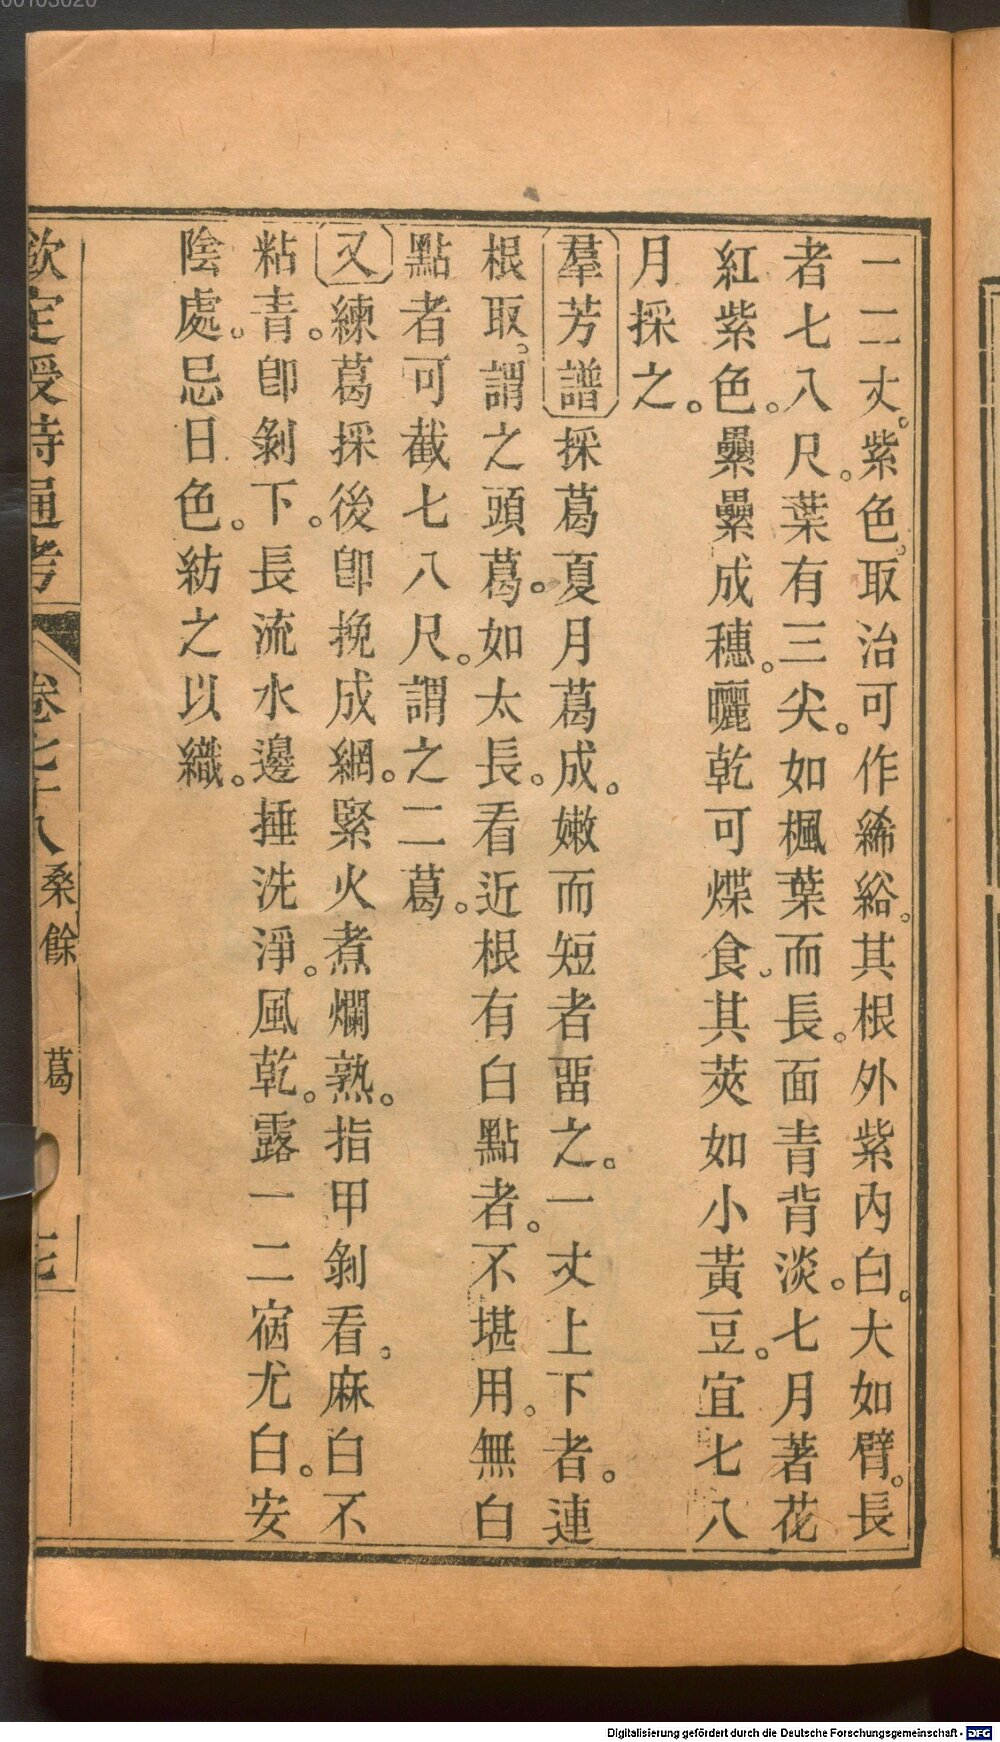 一二丈。紫色。取治可作絺綌。其根外紫內白。大如臂。長
者七八尺。葉有三尖。如楓葉而長。面青背淡。七月著花
紅紫色。纍纍成穗。曬乾可煠食。其莢如小黃豆。宜七八
月採之。
羣芳譜採葛夏月葛成。嫩而短者畱之。一丈上下者。連
根取。謂之頭葛。如太長。看近根有白點者。不堪用。無白
點者可截七八尺。謂之二葛。
又練葛採後卽挽成網。緊火煮爛熟。指甲剝看。麻白不
粘青。卽剝下。長流水邊捶洗淨。風乾。露一二宿尤白。安
陰處。忌日色。紡之以織。
欽定授時通考 卷之七十八 桑餘 葛
Digitalisierung gefördert durch die Deutsche Forschungsgemeinschaft - DFG